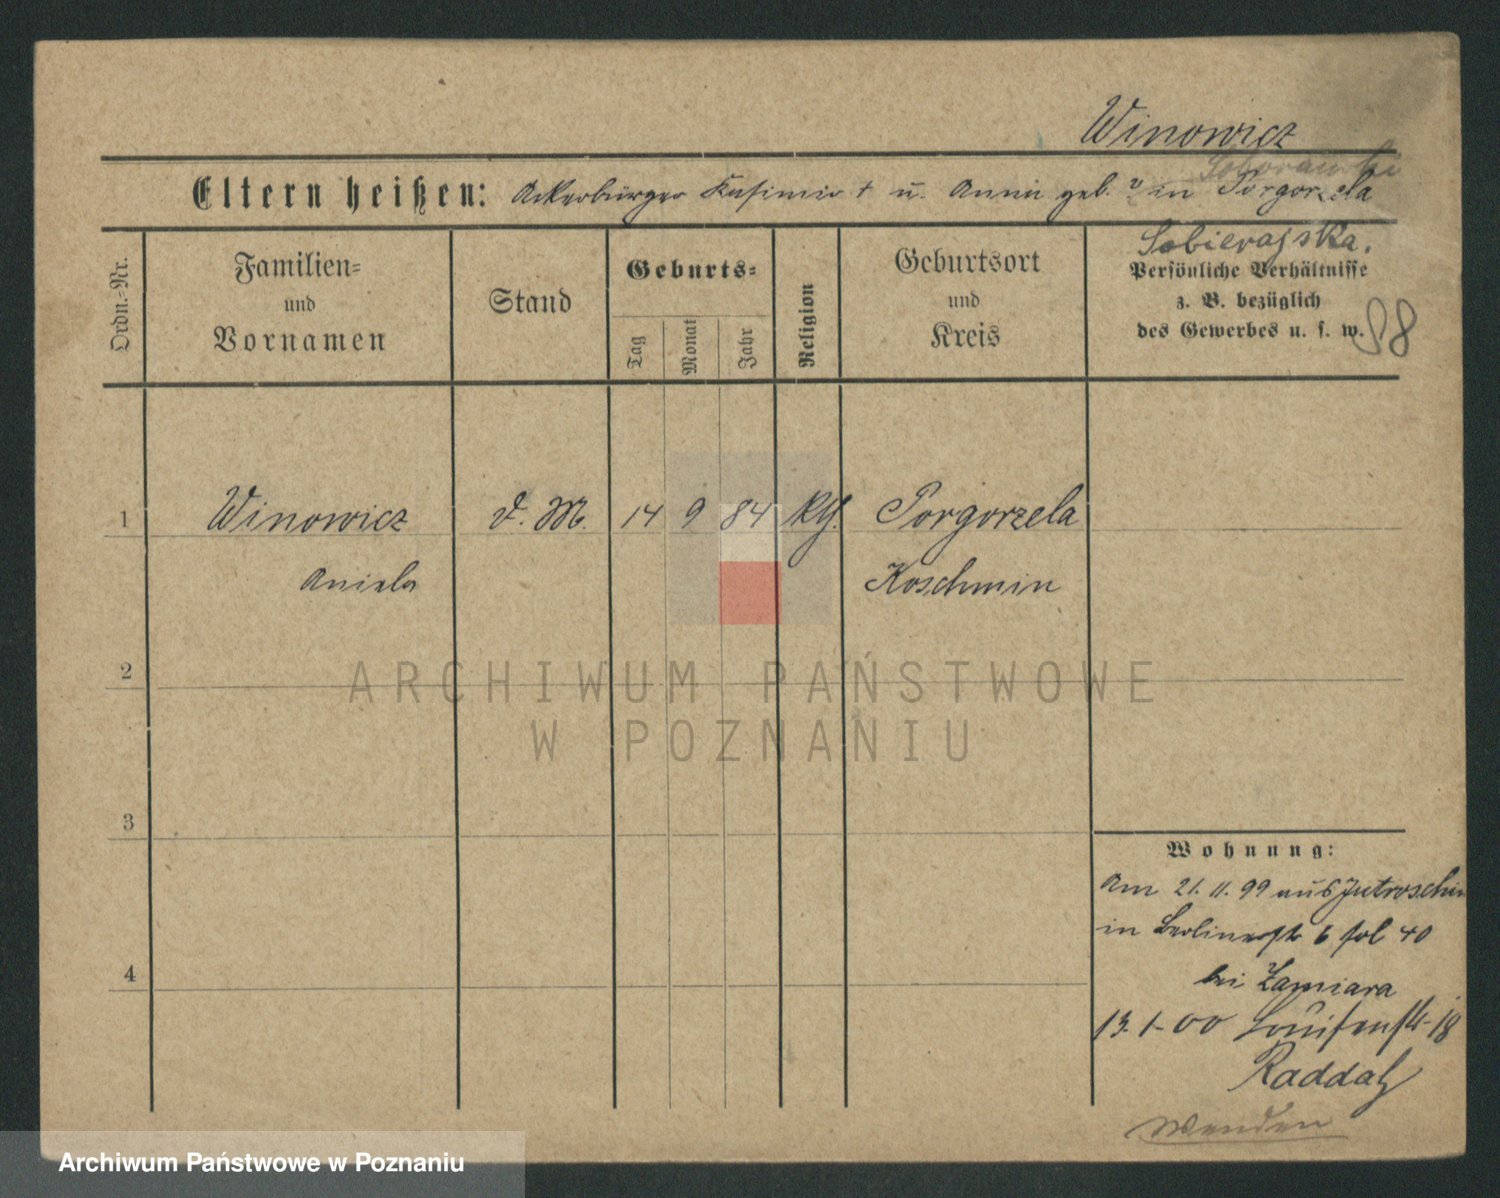 Winowicz
Eltern heißen: Ackerbürger Kasimir † u. Anna geb. ? in Porgorzela
Sobierajska.
Ordn.-Nr.
Familien-
und
Vornamen
Stand
Geburts-
Tag
Monat
Jahr
Religion
Geburtsort
und
Kreis
Persönliche Verhältnisse
z. B. bezüglich
des Gewerbes u. s. w.
98
1 Winowicz d. M. 14 9 84 Kth. Porgorzela
Aniela Koschmin
2
3
4
Wohnung:
Am 21. 11. 99 aus Jutroschin
in Berlinerstr 6 fol 40
bei Zamiara
13-1-00 Louisenstr 18
Raddatz
Wenden
ARCHIWUM PAŃSTWOWE
W POZNANIU
Archiwum Państwowe w Poznaniu